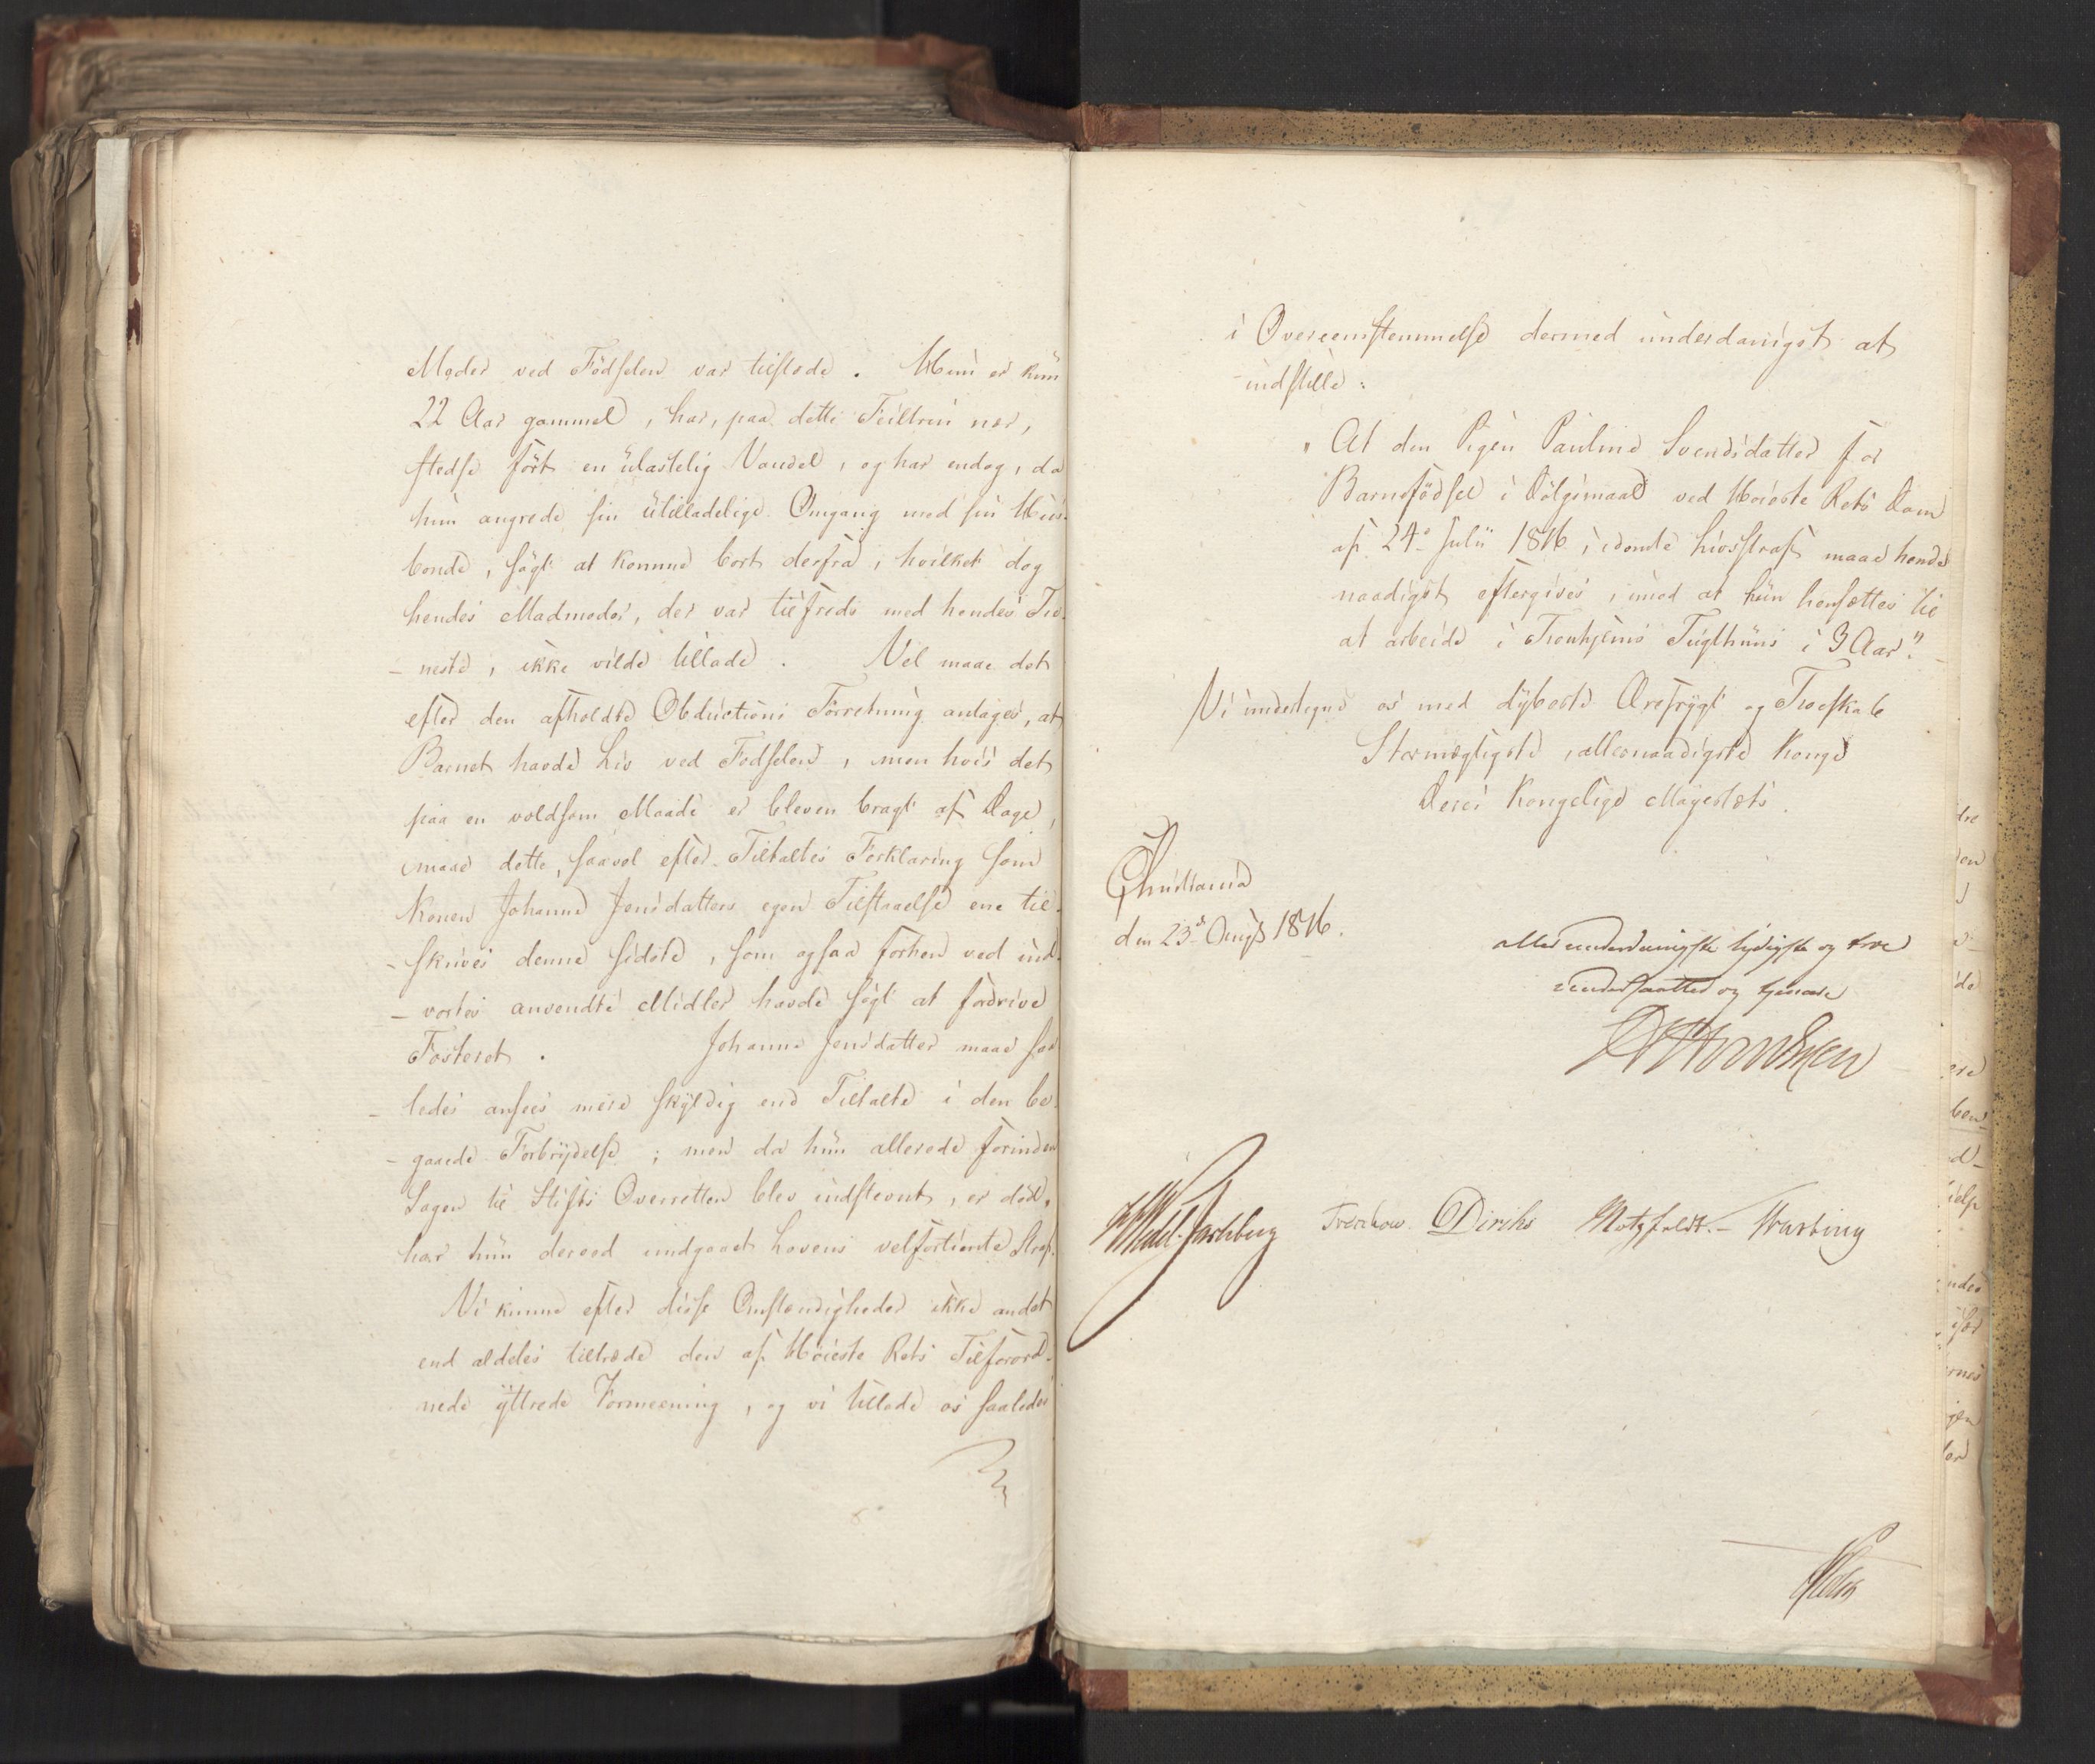 Moder ved Födselen var tilstede. Hun er kun
22 Aar gammel, har, paa dette Feiltrin nær,
stedse fört en ulastelig Vandel, og har endog, da
hun angrede sin utilladelige Omgang med sin Huus-
bonde, sögt at komme bort derfra, hvilket dog
hendes Madmoder, der var tilfreds med hendes Tie-
- neste, ikke vilde tillade. Vel maae det
efter den afholdte Obductions Forretning antages, at
Barnet havde Liv ved Fodselen, men hvis det
paa en voldsom Maade er bleven bragt af Dage,
maae dette, saavel efter Tiltaltes Forklaring som
Konen Johanne Jensdatters egen Tilstaaelse ene til-
- skrives denne sidste, som ogsaa forhen ved ind-
- vortes anvendte Midler havde sögt at fordrive
Fosteret. Johanne Jensdatter maae saa-
- ledes ansees mere skyldig end Tiltalte i den be-
- gaaede Forbrydelse; men da hun allerede forinden
Sagen til Stifts Overretten blev indstevnt, er död,
har hun derved undgaaet Lovens velfortiente Straf.
Vi kunne efter disse Omstændigheder ikke andet
end aldeles tiltræde den af Höieste Rets Tilforord-
nede yttrede Formeening, og vi tillade os saaledes
i Overeensstemmelse dermed underdanigst at
indstille:
"At den Pigen Pauline Svendsdatter for
Barnefödsel i Dölgsmaal ved Höieste Rets Dom
af 24de Julii 1816, idömte Livsstraf maae hende
naadigst eftergives, imod at hun hensættes til
at arbeide i Tronhjems Tugthuus i 3 Aar".
Vi undertegne os med dybeste Ærefrygt og Troeskab
Stormægtigste, allernaadigste Konge
Deres Kongelige Majestæts
Christiania
den 23de Augt 1816.
allerunderdanigste lydigste og troe
undersaatter og tjenere
Wedel Jarlsberg Treschow Diriks Motzfeldt. - Krafting
dre
en
de
ere
ben
d-
ielse
nder
rnes
gen